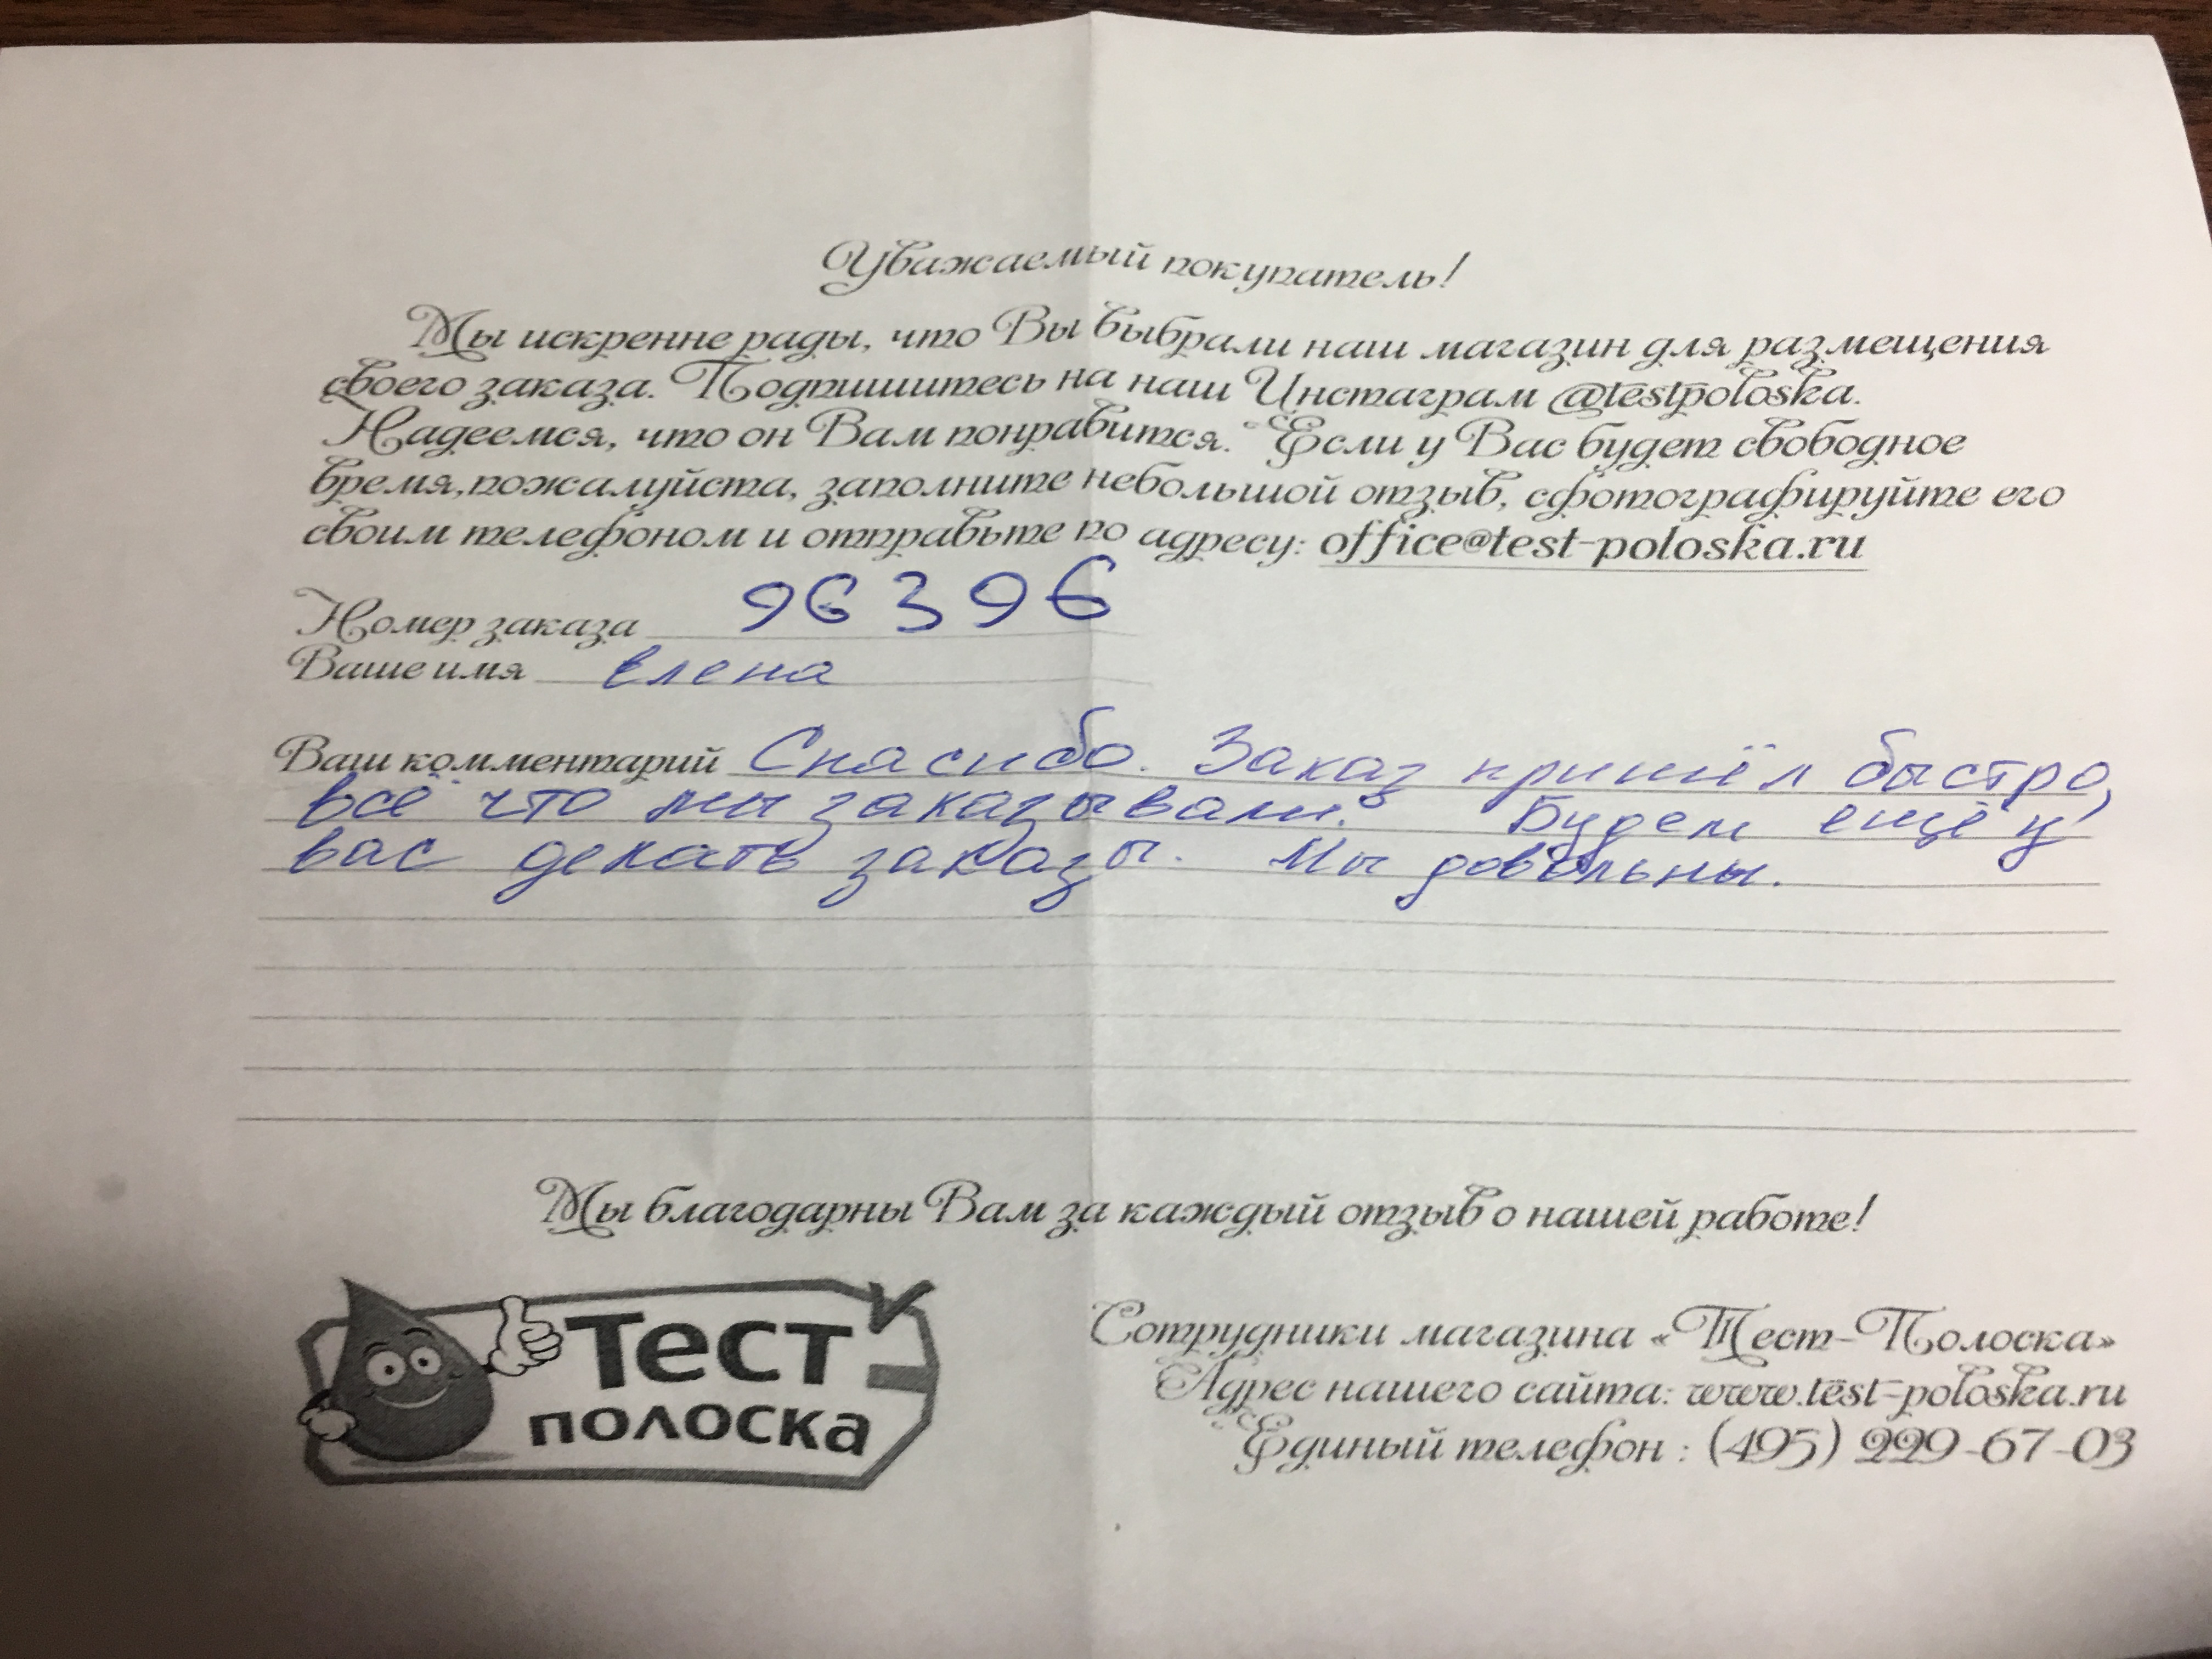 Уважаемый покупатель!
Мы искренне рады, что Вы выбрали наш магазин для размещения
своего заказа. Подпишитесь на наш Инстаграм @testpoloska.
Надеемся, что он Вам понравится. Если у Вас будет свободное
время,пожалуйста, заполните небольшой отзыв, сфотографируйте его
своим телефоном и отправьте по адресу: office@test-poloska.ru
Номер заказа 96396
Ваше имя Елена
Ваш комментарий Спасибо. Заказ пришёл быстро,
всё что мы заказывали. Будем ещё у
вас делать заказы. Мы довольны.
Мы благодарны Вам за каждый отзыв о нашей работе!
Тест
полоска
Сотрудники магазина «Тест-Полоска»
Адрес нашего сайта: www.test-poloska.ru
Единый телефон : (495) 229-67-03